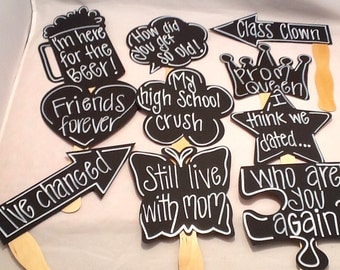 I'm here
for the
Beer!
How did
you get
so old!
Class Clown
Prom
Queen
Friends
forever
My
high School
crush
I think we
dated...
I've changed
Still live
with mom
Who are
you
again?